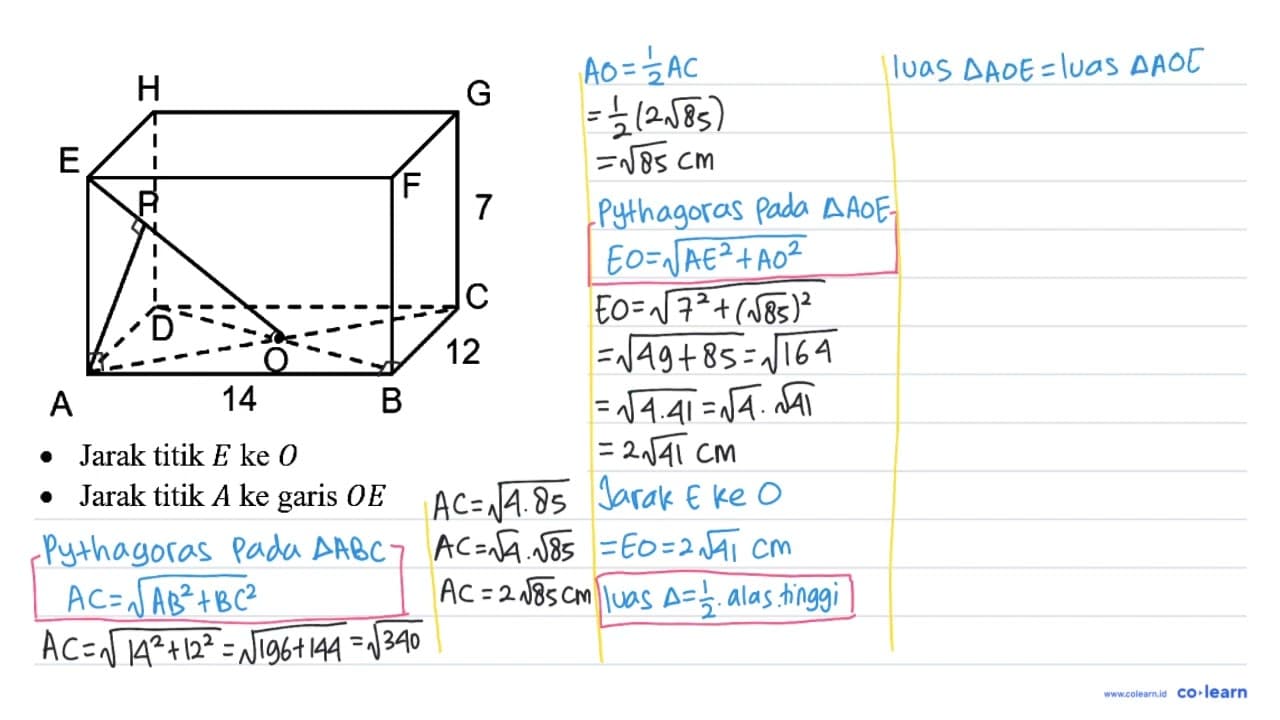 H
G
E
F
P
7
C
D
12
O
A
14
B
• Jarak titik E ke O
• Jarak titik A ke garis OE
Pythagoras Pada ΔABC
AC=√AB²+BC²
AC=√14²+12² =√196+144 =√340
AC=√4.85
AC=√4.√85
AC=2√85cm
AO=½AC
=½(2√85)
=√85 cm
Pythagoras Pada ΔAOE
EO=√AE²+AO²
EO=√7²+(√85)²
=√49+85=√164
=√4.41=√4.√41
=2√41 cm
Jarak E ke O
=EO=2√41 cm
luas Δ=½.alas.tinggi
luas ΔAOE=luas ΔAOE
www.colearn.id co·learn